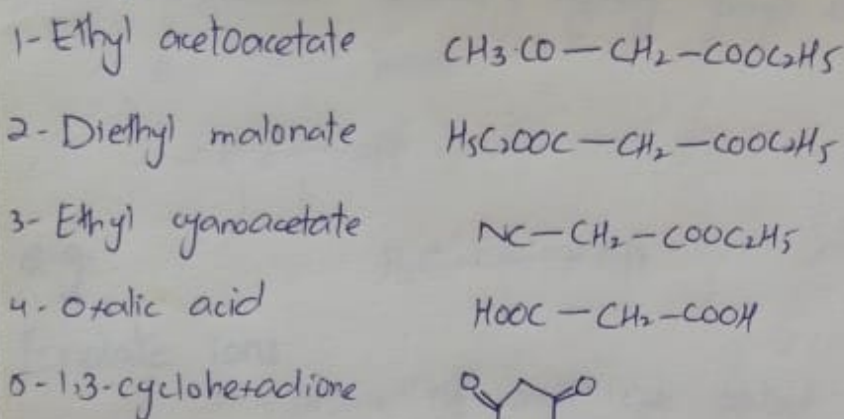 1- Ethyl acetoacetate CH3-CO-CH2-COOC2H5
2- Diethyl malonate H5C2OOC-CH2-COOC2H5
3- Ethyl cyanoacetate NC-CH2-COOC2H5
4- Oxalic acid HOOC-CH2-COOH
5-1,3-cyclohexadione O O